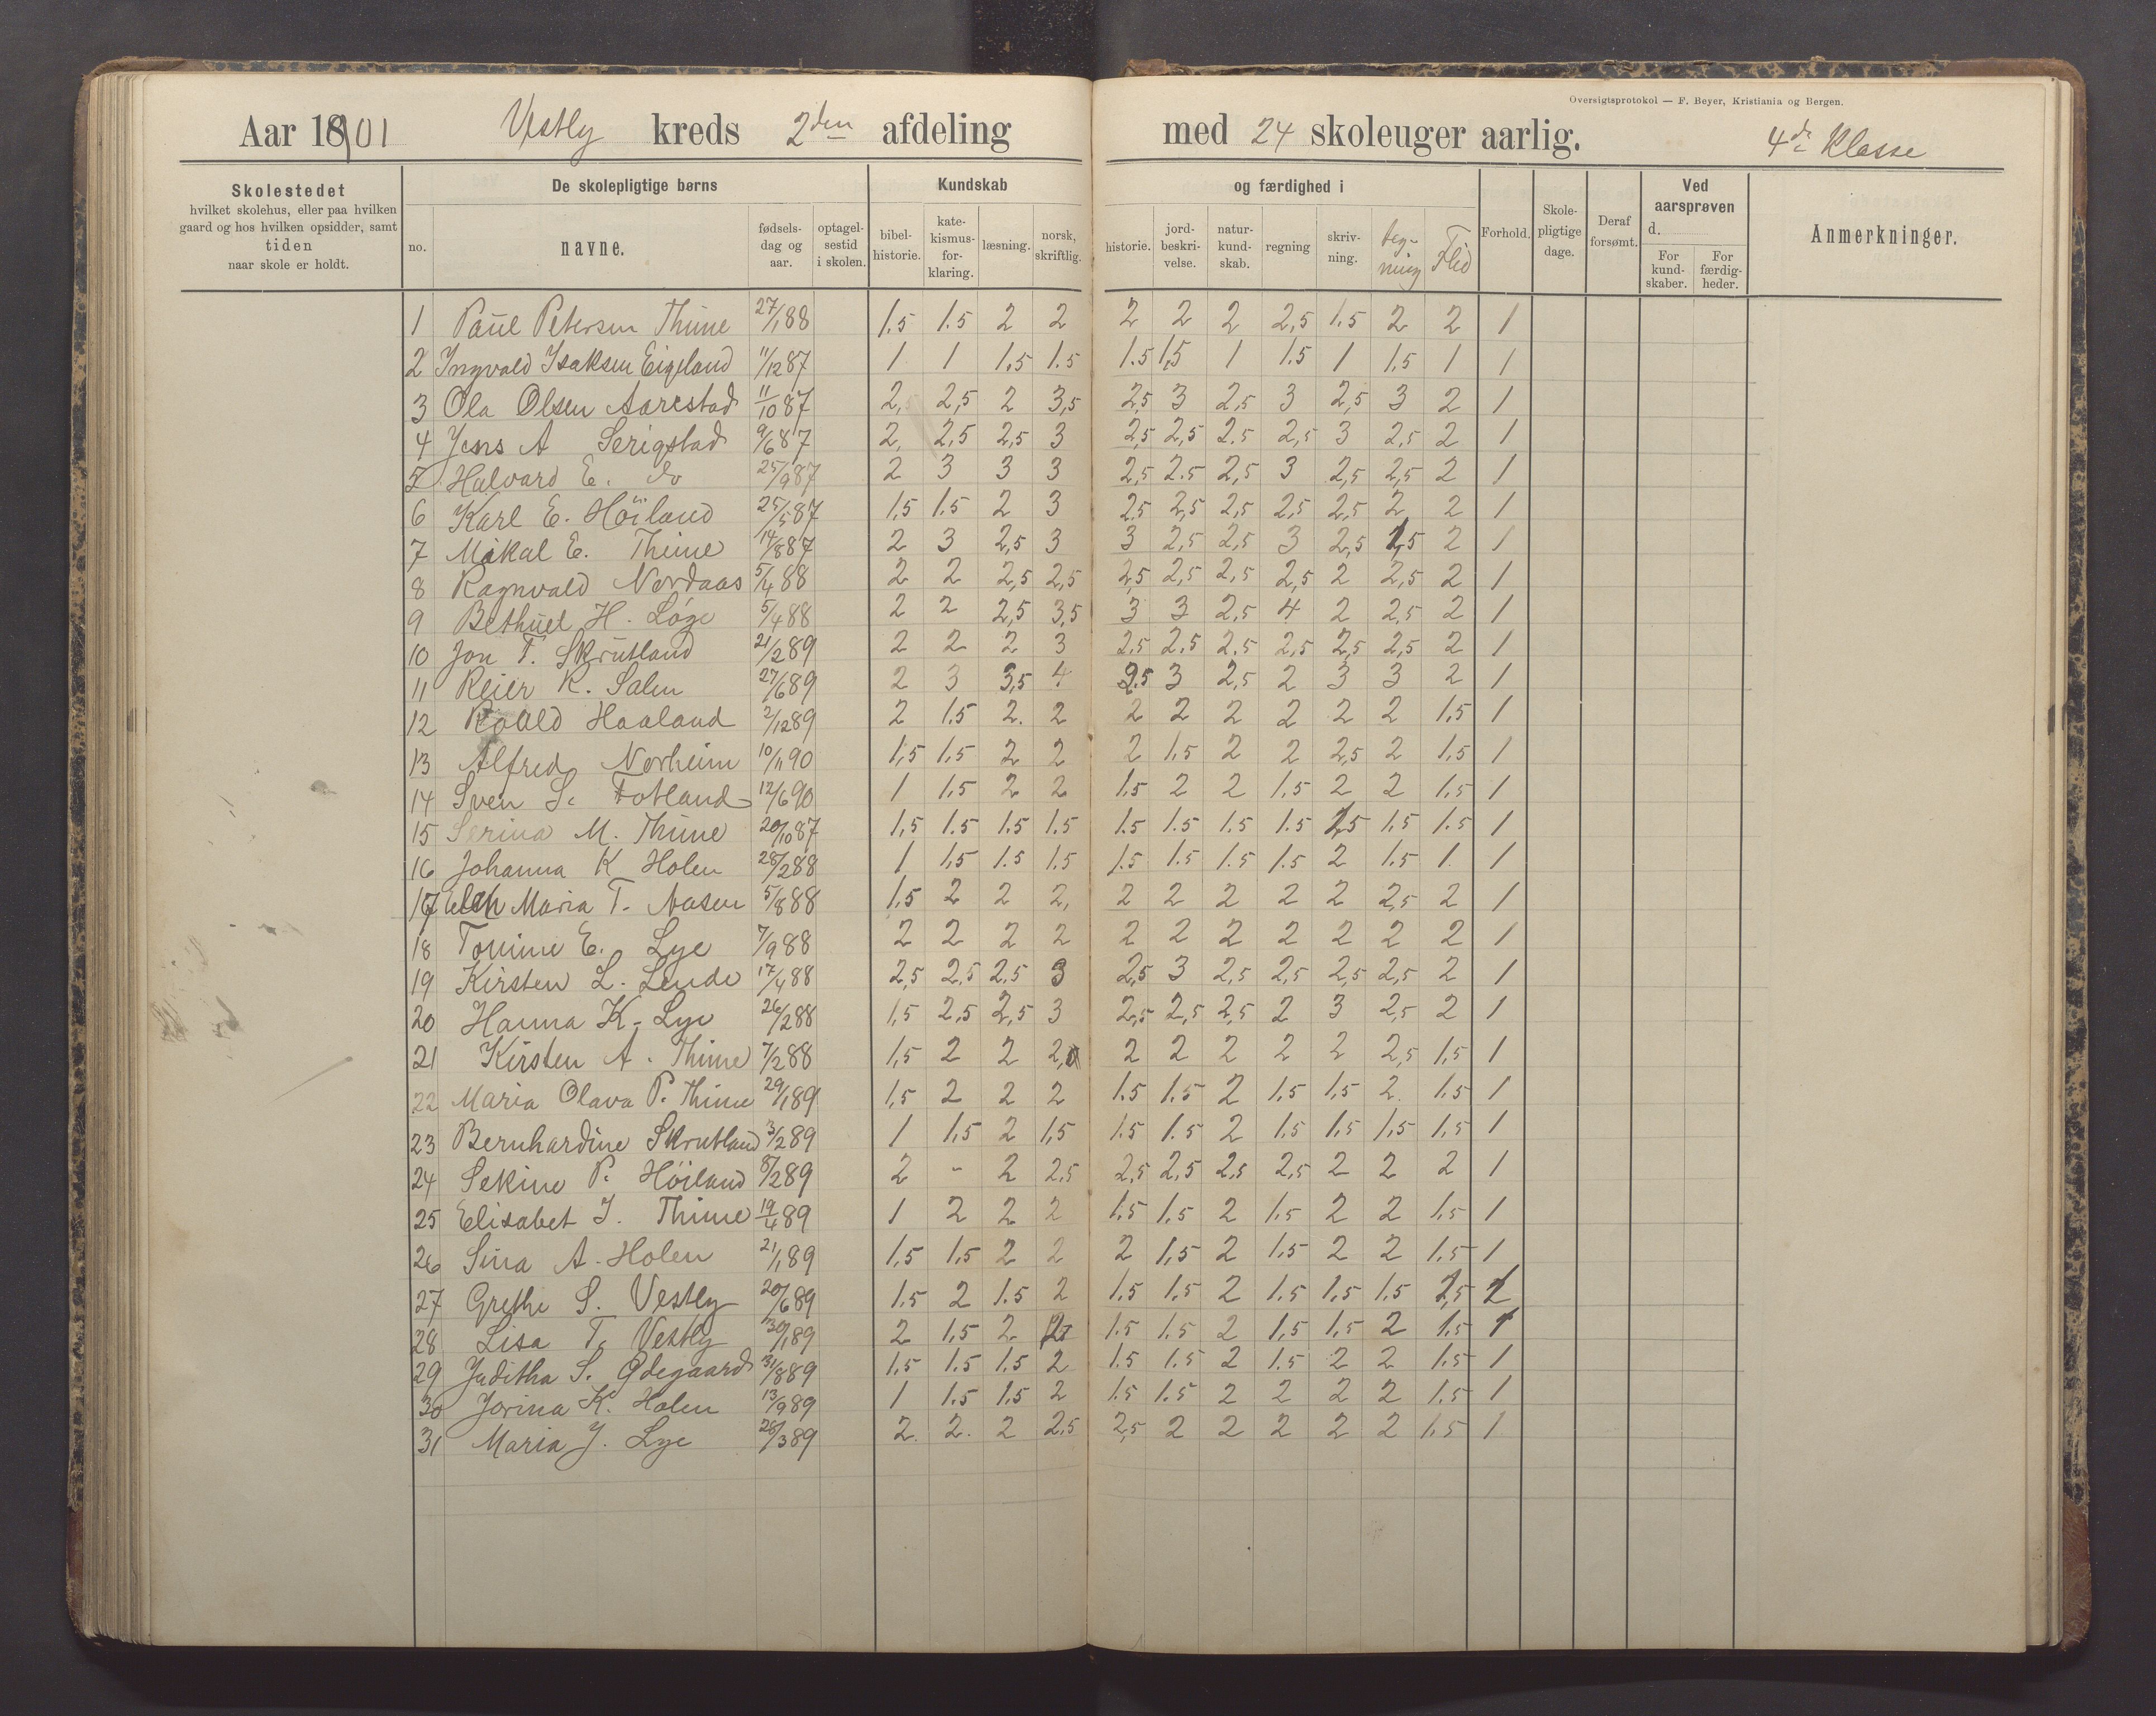 Oversigtsprotokol — F. Beyer, Kristiania og Bergen.
Aar 1901 Vestly kreds 2den afdeling med 24 skoleuger aarlig. 4de Klasse
Skolestedet hvilket skolehus, eller paa hvilken gaard og hos hvilken opsidder, samt tiden naar skole er holdt.
De skolepligtige børns
no. navne. fødselsdag og aar. optagelsestid i skolen.
Kundskab og færdighed i
bibelhistorie. katekismusforklaring. læsning. norsk, skriftlig. historie. jordbeskrivelse. naturkundskab. regning skrivning. tegning Flid
Forhold. Skolepligtige dage. Deraf forsømt. Ved aarsprøven d. For kundskaber. For færdigheder. Anmerkninger.
1 Paul Petersen Thime 27/1 88 1.5 1.5 2 2 2 2 2 2,5 1.5 2 2 1
2 Ingvald Isaksen Eigeland 11/12 87 1 1 1,5 1.5 1.5 1,5 1 1.5 1 1,5 1 1
3 Ola Olsen Aarestad 11/10 87 2, 2,5 2 3,5 2,5 3 2,5 3 2,5 3 2 1
4 Jens A Serigstad 9/6 87 2, 2,5 2,5 3 2,5 2,5 2.5 2,5 3 2,5 2 1
5 Halvard E. do 25/9 87 2 3 3 3 2,5 2.5 2,5 3 2,5 2,5 2 1
6 Karl E. Höiland 25/5 87 1,5 1.5 2 3 2,5 2,5 2,5 2,5 2,5 2 2 1
7 Mikal E. Thime 14/8 87 2 3 2,5 3 3 2,5 2,5 3 2,5 1,5 2 1
8 Ragnvald Nordaas 5/4 88 2 2 2,5 2,5 2,5 2,5 2,5 2,5 2 2,5 2 1
9 Bethuel H. Løge 5/4 88 2 2 2,5 3,5 3 3 2,5 4 2 2,5 2 1
10 Jon T. Skrutland 21/2 89 2 2 2 3 2,5 2.5 2.5 2,5 2,5 2,5 2 1
11 Reier K. Salen 27/6 89 2 3 3,5 4 2.5 3 2,5 2 3 3 2 1
12 Roald Haaland 2/12 89 2 1.5 2. 2 2 2 2 2 2 2 1,5 1
13 Alfred Norheim 10/11 90 1,5 1,5 2 2 2 1,5 2 2 2,5 2 1,5 1
14 Sven S. Fotland 12/6 90 1 1,5 2 2 1.5 2 2 1.5 2 2 1,5 1
15 Serina M. Thime 20/10 87 1,5 1.5 1.5 1.5 1.5 1.5 1.5 1.5 1,5 1,5 1.5 1
16 Johanna K Holen 28/2 88 1 1,5 1.5 1.5 1.5 1.5 1.5 1.5 2 1.5 1. 1
17 Maria T. Aasen 5/8 88 1.5 2 2 2, 2 2 2 2 2 2,5 2 1
18 Tomine E. Lye 7/9 88 2 2 2 2 2 2 2 2 2 2 2 1
19 Kirsten L. Lende 17/4 88 2,5 2,5 2,5 3 2,5 3 2,5 2,5 2,5 2,5 2 1
20 Hanna K. Lye 26/2 88 1,5 2,5 2,5 3 2,5 2,5 2,5 2 3 2,5 2 1
21 Kirsten A. Thime 7/2 88 1,5 2 2 2 2 2 2 2 2,5 1,5 1
22 Maria Olava P. Thime 29/1 89 1,5 2 2 2 1.5 1.5 2 1,5 1,5 2. 1.5 1
23 Bernhardine Skrutland 3/2 89 1 1,5 2 1,5 1.5 1.5 2 1.5 1,5 1,5 1,5 1
24 Sekine P. Höiland 8/2 89 2 - 2 2,5 2,5 2,5 2,5 2,5 2 2 2 1
25 Elisabet J. Thime 19/4 89 1 2 2 2 1.5 1,5 2 1,5 2 2 1,5 1
26 Sina A. Holen 21/1 89 1,5 1,5 2 2 2 1,5 2 1,5 2 2 1,5 1
27 Grethe S. Vestly 20/6 89 1.5 2 1.5 2 1,5 1,5 2 1.5 1,5 1.5 1,5 1
28 Lisa T. Vestly 30/1 89 2 1,5 2 2 1.5 1.5 2 1,5 1,5 2 1,5 1
29 Juditha S. Ødegaard 31/8 89 1,5 1.5 1.5 2 1.5 1.5 2 1.5 2 2 1.5 1
30 Jorina K. Holen 13/9 89 1 1.5 1,5 2 1.5 1.5 2 2 2 2 1.5 1
31 Maria J. Lye 28/3 89 2. 2. 2 2,5 2,5 2 2 2 2 2 1.5 1